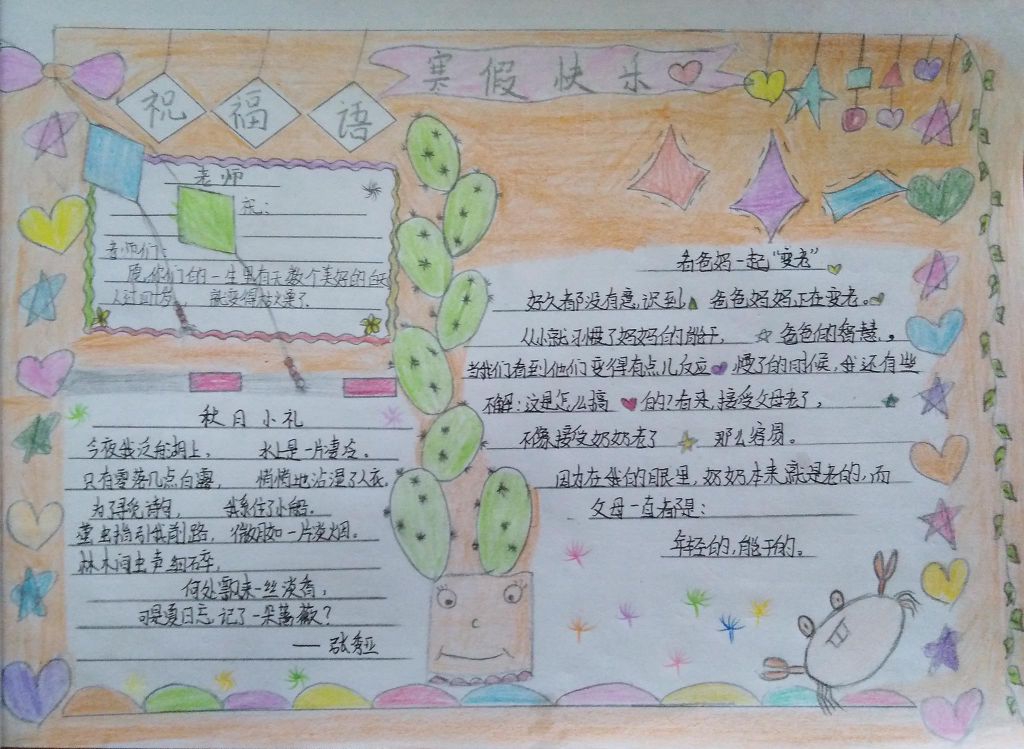 寒假快乐
祝福语
老师
祝:
老师们:
愿你们的一生里有无数个美好的白天
秋月小礼
今夜我泛舟湖上, 水上是一片凄冷。
只有零落几点白露, 悄悄地沾湿了人衣。
为了寻觅诗句, 我系住了小船。
萤虫指引我前路, 微如一片淡烟。
林木间虫声细碎,
何处飘来一丝淡香,
可是夏日忘记了一朵蔷薇?
—— 张秀亚
看爸妈一起“变老”
好久都没有意识到 爸爸妈妈正在变老。
从小就习惯了妈妈的能干, 爸爸的智慧,
当我们看到他们变得有点儿反应 慢了的时候,我还有些
不解:这是怎么搞 的?看来,接受父母老了,
不像接受奶奶老了 那么容易。
因为在我的眼里,奶奶本来就是老的,而
父母一直都是:
年轻的,能干的。